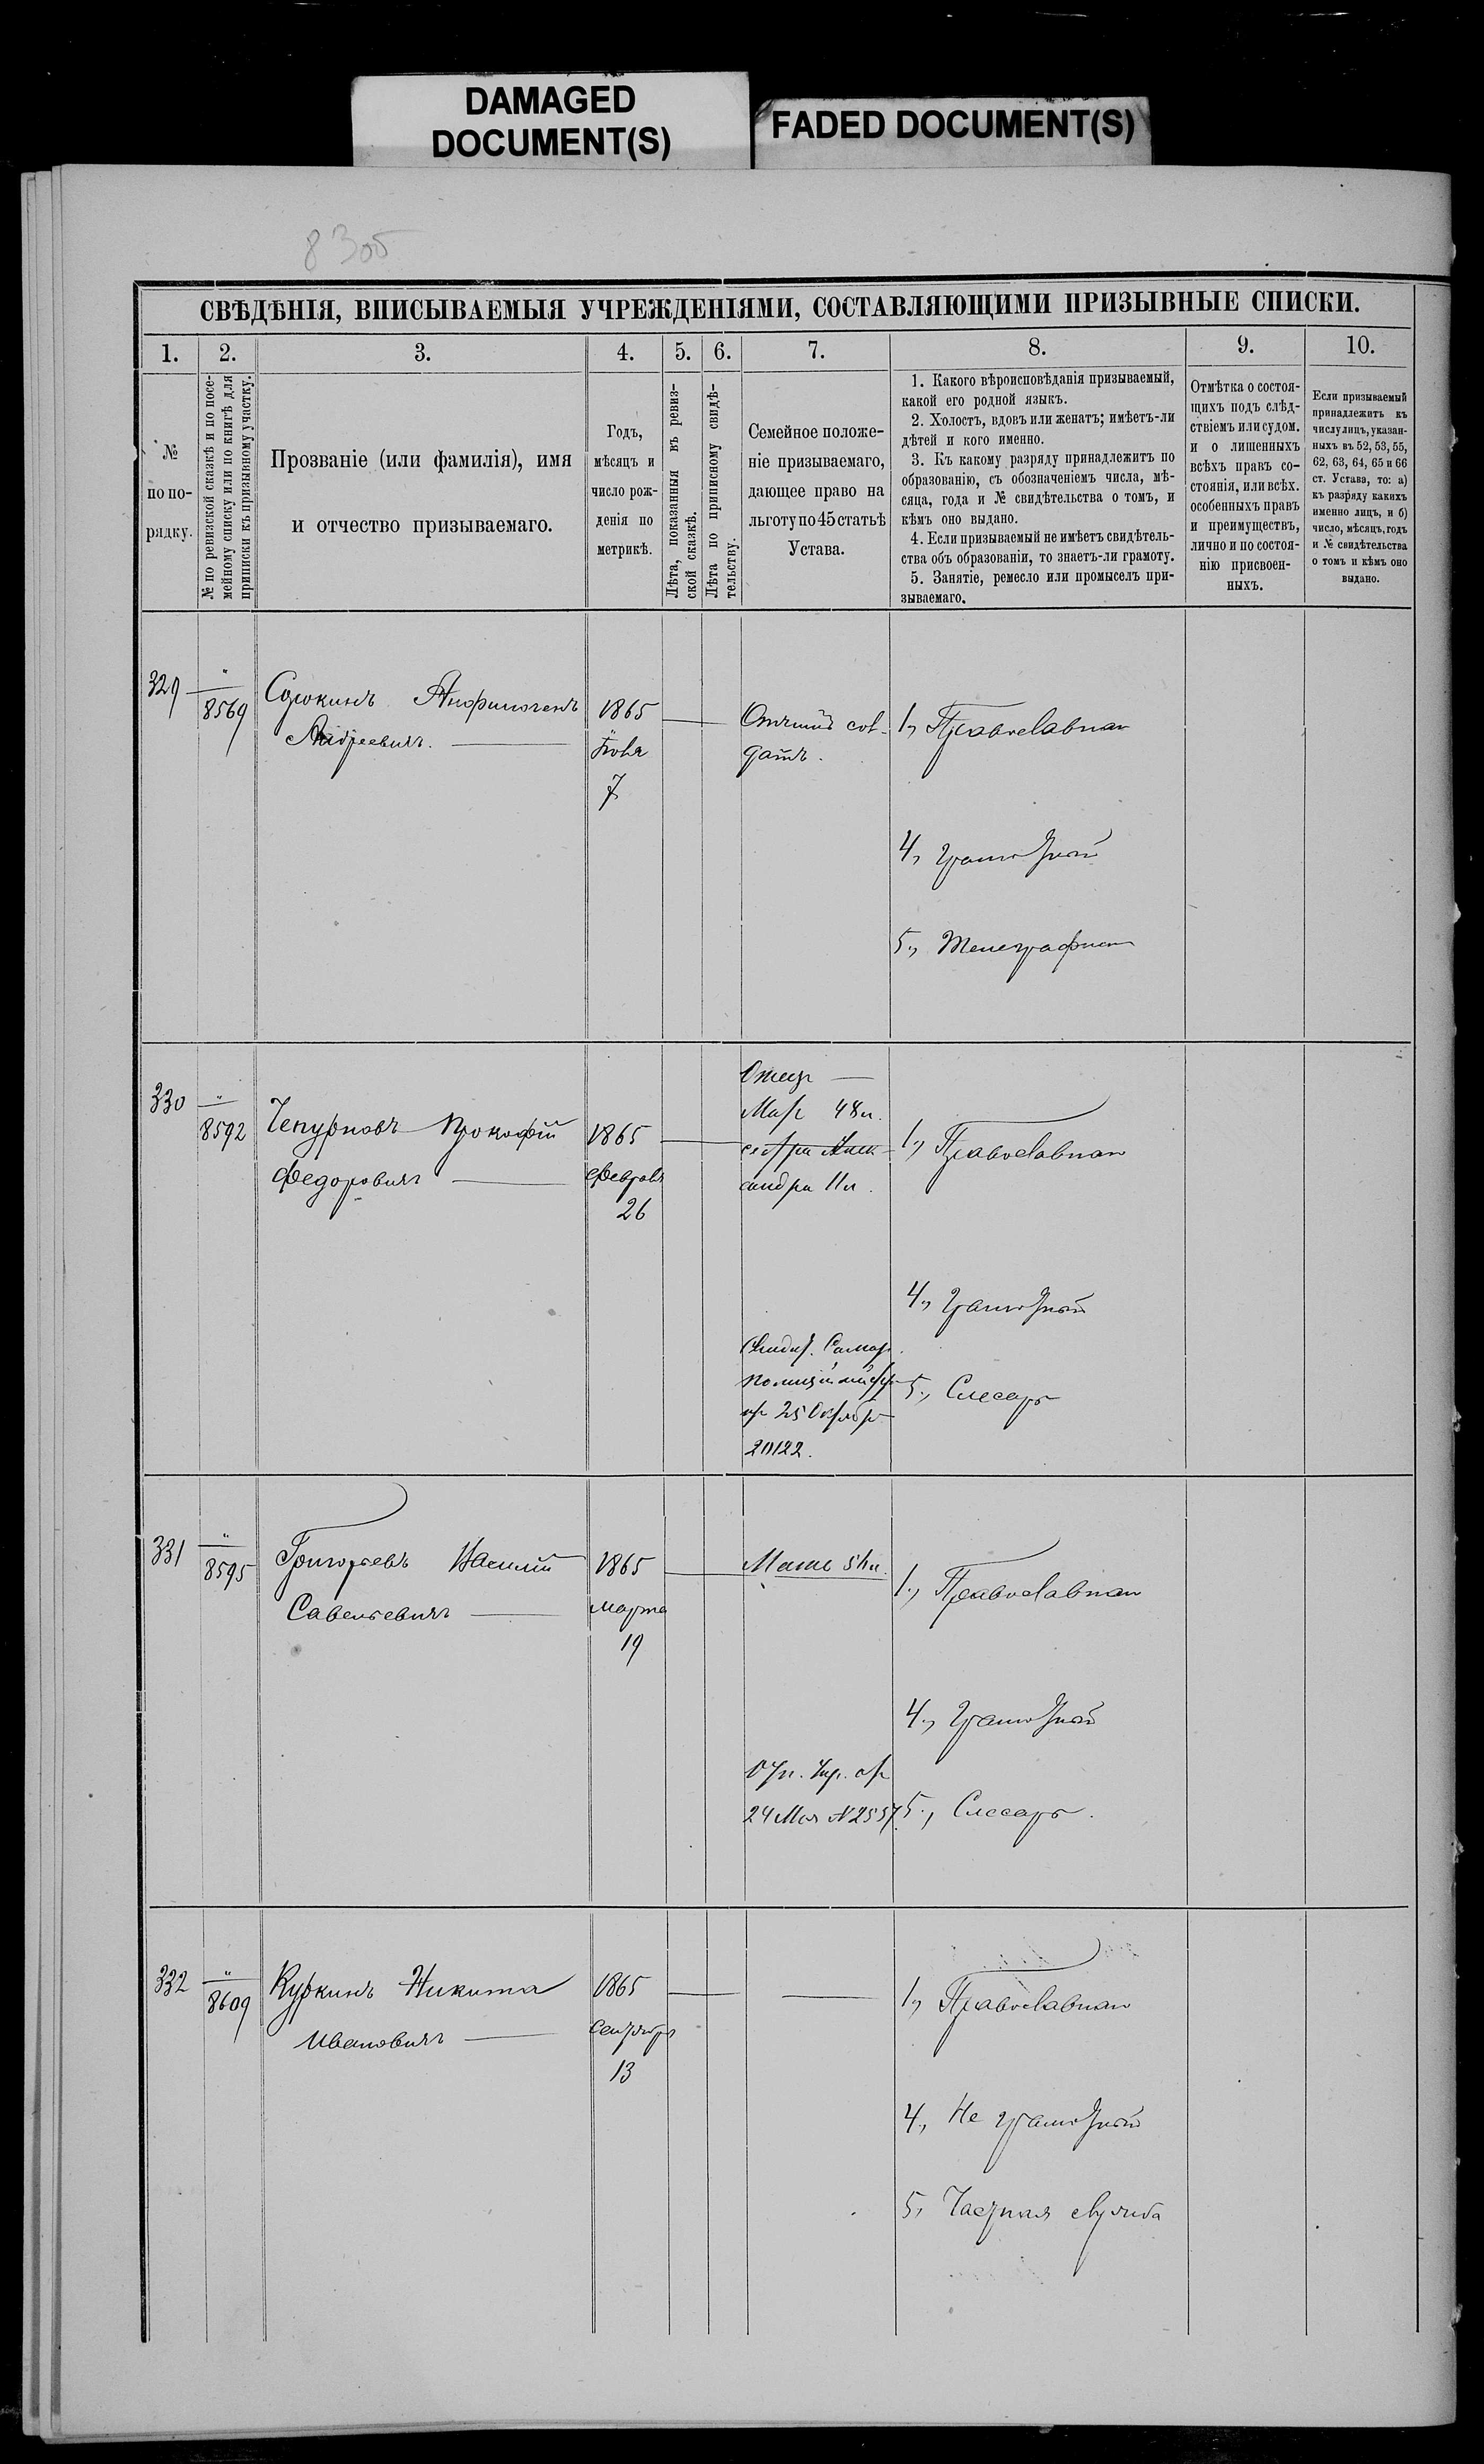 DAMAGED
DOCUMENT(S)
FADED DOCUMENT(S)
83об
СВѢДѢНІЯ, ВПИСЫВАЕМЫЯ УЧРЕЖДЕНІЯМИ, СОСТАВЛЯЮЩИМИ ПРИЗЫВНЫЕ СПИСКИ.
1.
2.
3.
4.
5.
6.
7.
8.
9.
10.
№
по по-
рядку.
№ по ревизской сказкѣ и по посе-
мейному списку или по книгѣ для
приписки къ призывному участку.
Прозваніе (или фамилія), имя
и отчество призываемаго.
Годъ,
мѣсяцъ и
число рож-
денія по
метрикѣ.
Лѣта, показанныя въ ревиз-
ской сказкѣ.
Лѣта по приписному свидѣ-
тельству.
Семейное положе-
ніе призываемаго,
дающее право на
льготу по 45 статьѣ
Устава.
1. Какого вѣроисповѣданія призываемый,
какой его родной языкъ.
2. Холостъ, вдовъ или женатъ; имѣетъ-ли
дѣтей и кого именно.
3. Къ какому разряду принадлежитъ по
образованію, съ обозначеніемъ числа, мѣ-
сяца, года и № свидѣтельства о томъ, и
кѣмъ оно выдано.
4. Если призываемый не имѣетъ свидѣтель-
ства объ образованіи, то знаетъ-ли грамоту.
5. Занятіе, ремесло или промыселъ при-
зываемаго.
Отмѣтка о состоя-
щихъ подъ слѣд-
ствіемъ или судом.
и о лишенныхъ
всѣхъ правъ со-
стоянія, или всѣх.
особенныхъ правъ
и преимуществъ,
лично и по состоя-
нію присвоен-
ныхъ.
Если призываемый
принадлежитъ къ
числу лицъ, указан-
ныхъ въ 52, 53, 55,
62, 63, 64, 65 и 66
ст. Устава, то: а)
къ разряду какихъ
именно лицъ, и б)
число, мѣсяцъ, годъ
и № свидѣтельства
о томъ и кѣмъ оно
выдано.
329
"
8569
Андреевичъ.
1865
Іюня
7
Отчимъ сол-
датъ.
1, Православнаго
4, грамотный
5, Телеграфист
330
"
8592
Чепурновъ Прокофій
Федоровичъ
1865
Февраля
26
Отецъ
Мать 48 л.
сестра Алек-
сандра 11 л.
Свидѣт. Самар.
от 25 Октября
20122.
1, Православнаго
4, грамотный
5, Слесарь
331
"
8595
Григорьевъ Василій
Савельевичъ
1865
Марта
19
Мать 51 л.
24 Мая № 2557.
1, Православнаго
4, грамотный
5, Слесарь.
332
"
8609
Куркинъ Никита
Ивановичъ
1865
Сентября
13
1, Православнаго
4, Не грамотный
5, Частная служба